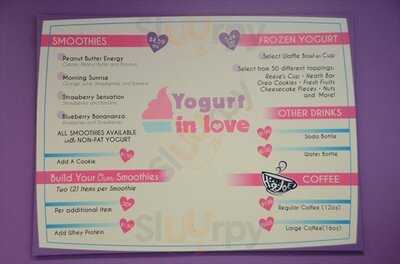 SMOOTHIES
Peanut Butter Energy
Morning Sunrise
Strawberry Sensation
Blueberry Bonananza
ALL SMOOTHIES AVAILABLE
with NON-FAT YOGURT
Add A Cookie
Build Your Own Smoothies
Two (2) Items per Smoothie
Per additional item
Add Whey Protein
Yogurt
in love
FROZEN YOGURT
Select Waffle Bowl or Cup
Select from 50 different toppings:
Reese's Cup - Heath Bar
Oreo Cookies - Fresh Fruits
Cheesecake Pieces - Nuts
and More!
OTHER DRINKS
Soda Bottle
Water Bottle
COFFEE
Regular Coffee (12oz)
Large Coffee (16oz)
Sluurpy
Sluurpy
Sluurpy